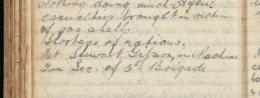 Nothing doing much. A few
casualties brought in victim
of gas shells.
Shortage of rations.
Lt. Stewart Gibson, in Machine
Gun Sec. of 5th Brigade